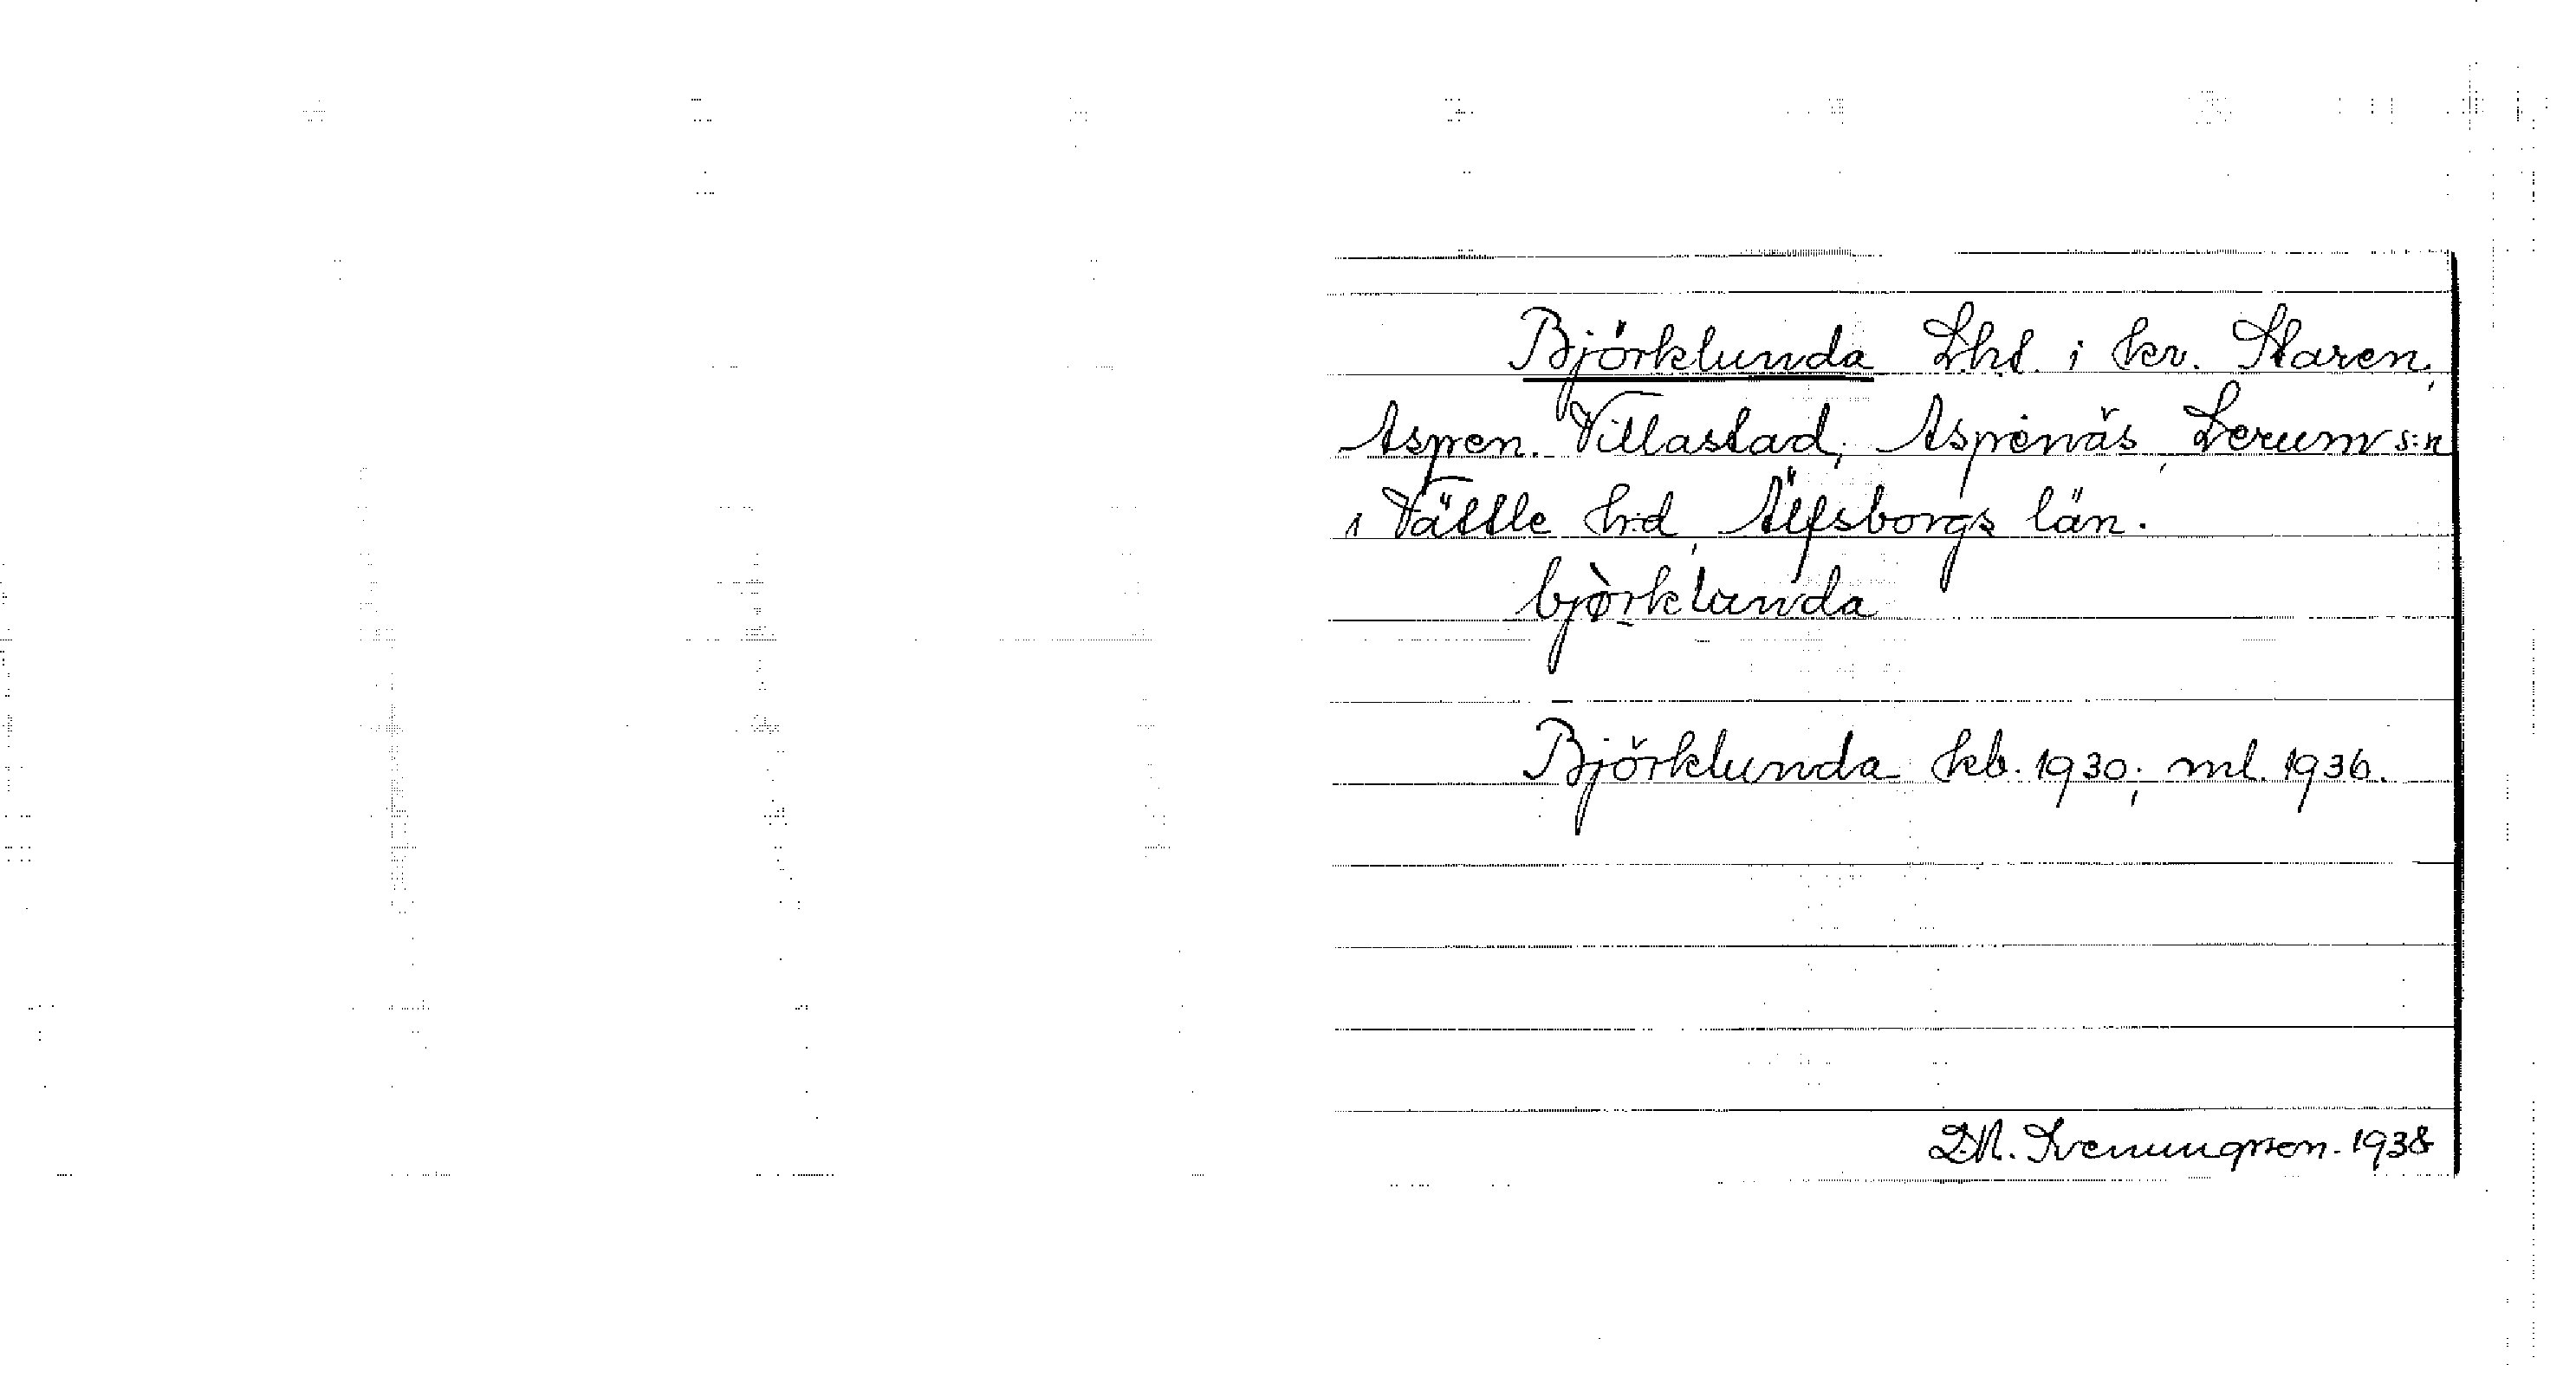 Björklunda Lht. i kv. Staren,
Aspen. Villastad, Aspenäs, Lerum s:n
i Vättle h:d, Älfsborgs län.
bjòrklunda
Björklunda kb. 1930; ml. 1936.
1938